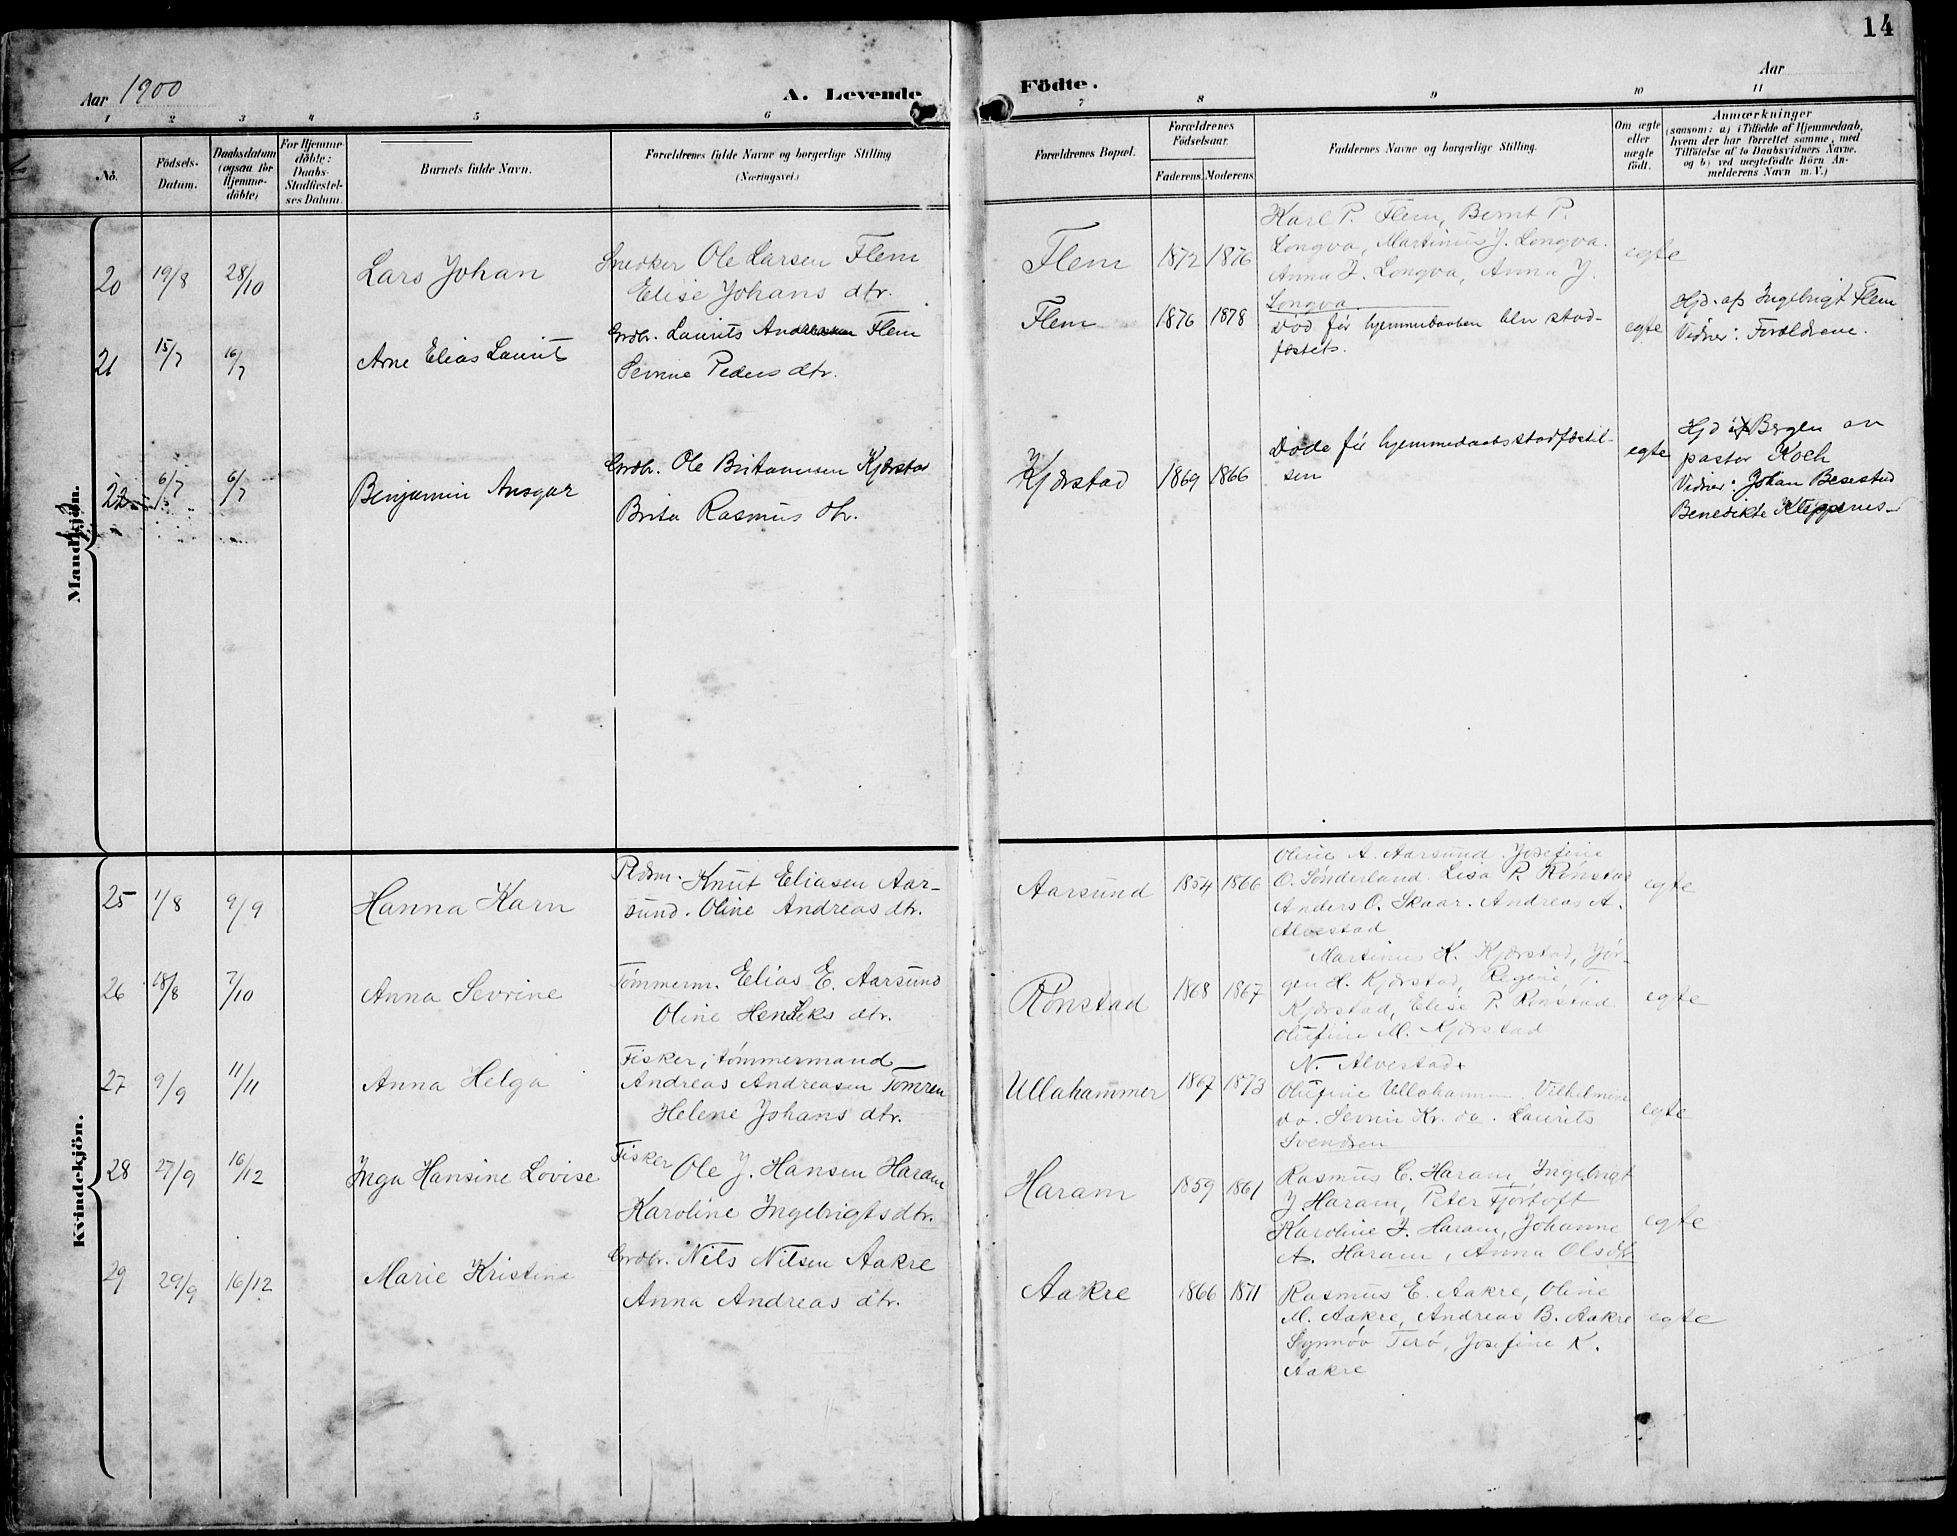 14
Aar 1900
A. Levende
Födte.
Aar
1 2 3 4 5 6 7 8 9 10 11
No.
Födsels-
Datum.
Daabsdatum
(ogsaa for
Hjemme-
döbte)
For Hjemme-
döbte:
Daabs-
Stadfæstel-
ses Datum.
Barnets fulde Navn.
Forældrenes fulde Navne og borgerlige Stilling
(Næringsvei.)
Forældrenes Bopæl.
Forældrenes
Födselsaar.
Faderens. Moderens.
Faddernes Navne og borgerlige Stilling.
Om ægte
eller
uægte
födt.
Anmærkninger
(saasom: a) i Tilfælde af Hjemmedaab,
hvem der har forrettet samme, med
Tilföielse af to Daabsvidners Navne.
og b) ved uægtefödte Börn An-
melderens Navn m. V.)
Mandkjön.
20 19/8 28/10 Lars Johan
Snedker Ole Larsen Flem
Elise Johans dtr.
Flem 1872 1876
Karl P. Flem, Bernt P.
Longva, Martinus J. Longva.
Anna J. Longva, Anna J.
Longva
egte
21 15/7 16/7 Arne Elias Laurits
Grdbr. Laurits Andreassen Flem
Sevrine Peders dtr.
Flem 1876 1878
Död før hjemmedaaben blev stad-
fæstet.
egte
Hjd. af Ingebrigt Flem
Vidner: Forældrene.
22 6/7 6/7 Benjamin Ansgar
Grdbr. Ole Kjærstad
Brita Rasmus dtr.
Kjærstad 1869 1866
Døde før hjemmedaabsstadfæstel-
sen
egte
Hjd i Bergen av
pastor Koch
Vidner: Johan
Benedikte
Kvindekjön.
25 1/8 9/9 Hanna Karn
Pldsm. Knut Eliasen Aar-
sund. Oline Andreas dtr.
Aarsund 1854 1866
Oline A. Aarsund Josefine
O. Sønderland. Lisa P. Rönstad
Anders O. Skaar. Andreas A.
Alvestad
egte
26 18/8 7/10 Anna Sevrine
Tømmerm. Elias E. Aarsund
Oline Henriks dtr.
Rönstad 1868 1867
Martinus K. Kjærstad, Jør-
gen H. Kjærstad, Regine, T.
Kjærstad, Elise P. Rönstad
Olufine M. Kjærstad
egte
27 9/9 11/11 Anna Helga
Fisker, tømmermand
Andreas Andreasen Tomren
Helene Johans dtr.
Ullahammer 1867 1873
N. Alvestad
Olufine Ullahammer Vilhelmine
do. Sevrin Kr. do. Laurits
Svendsen
egte
28 27/9 16/12 Inga Hansine Lovise
Fisker Ole J. Hansen Haram
Karoline Ingebrigts dtr.
Haram 1859 1861
Rasmus C. Haram, Ingebrigt
J Haram, Peter Fjørtoft
Karoline J. Haram, Johanne
A. Haram, Anna Olsdtr
egte
29 29/9 16/12 Marie Kristine
Grdbr. Nils Nilsen Aakre
Anna Andreas dtr.
Aakre 1866 1871
Rasmus E. Aakre, Oline
M. Aakre, Andreas B. Aakre
Synnöv Terö, Josefine K.
Aakre
egte